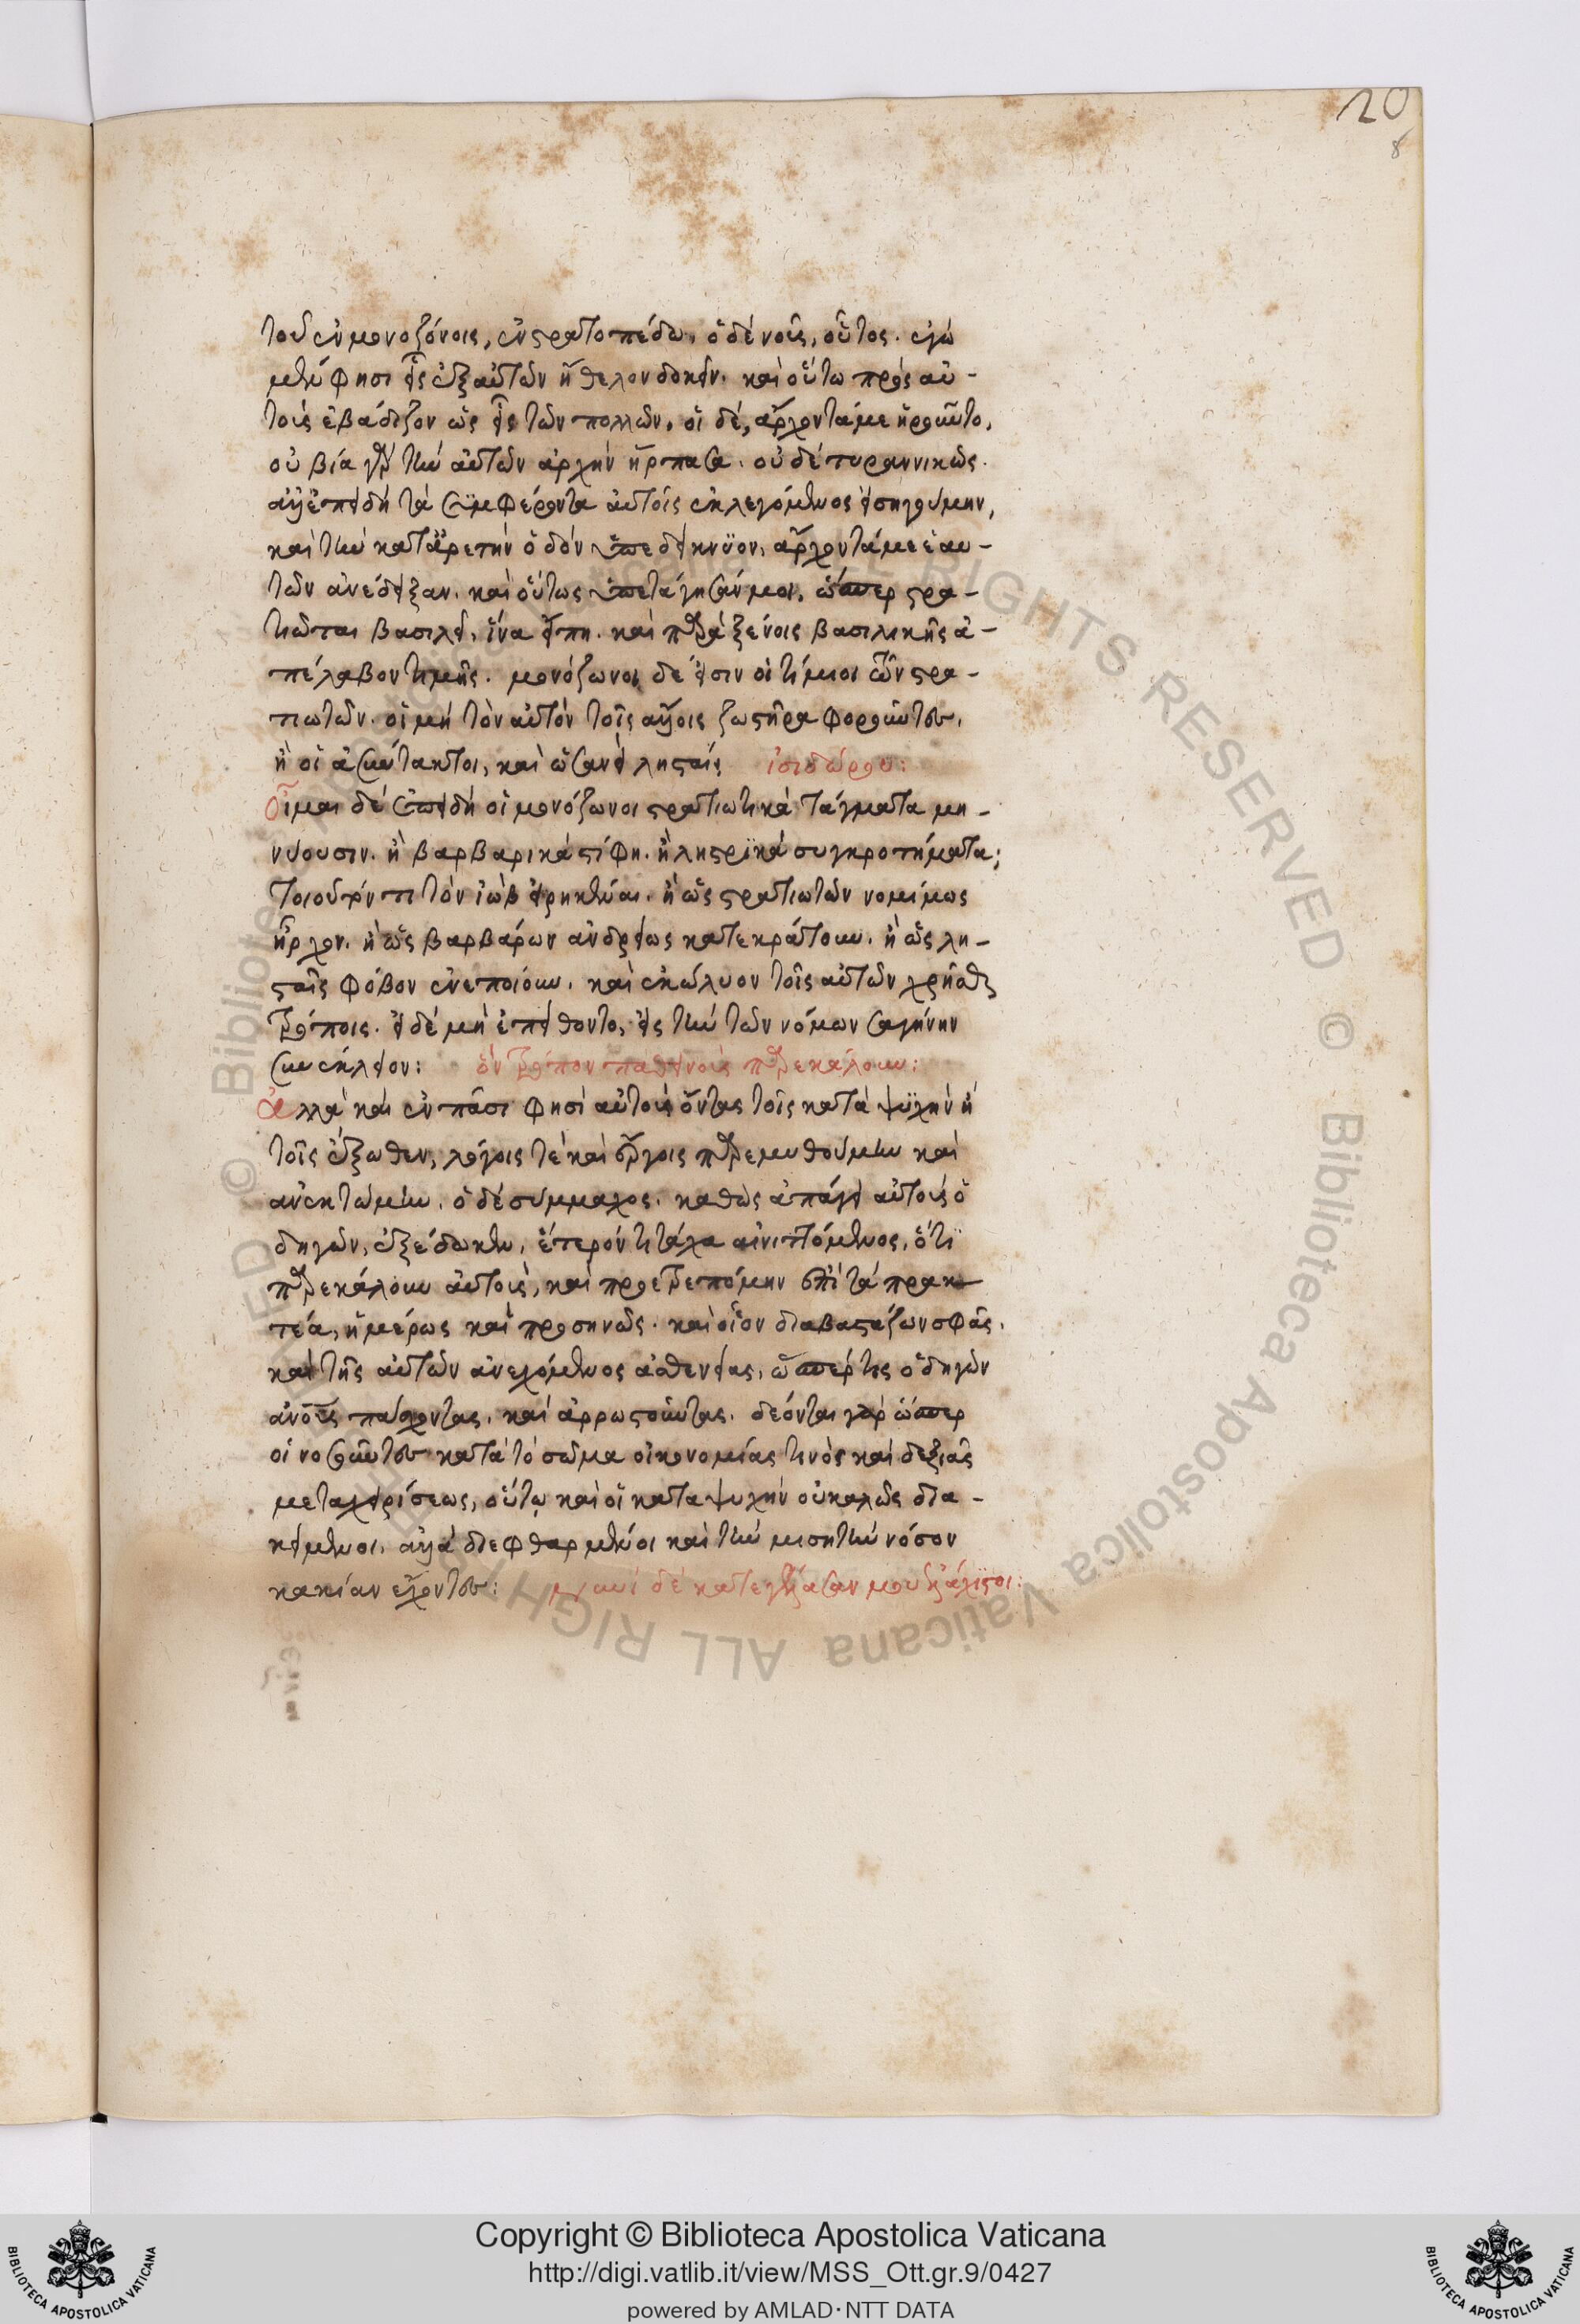 20
8
τοὺς ἐν μονοζώνοις, ἐν στρατοπέδω. ὁ δὲ νοῦς, οὗτος. ἐγὼ
μὲν φησι εἷς ἐξ αὐτῶν ἤθελον δοκεῖν. καὶ οὕτω πρὸς αὐ-
τοὺς ἐβάδιζον ὡς εἷς τῶν πολλῶν. οἱ δὲ, ἄρχοντά με ἡροῦντο.
οὐ βία γὰρ τὴν αὐτῶν ἀρχὴν ἥρπασα. οὐδὲ τυραννικῶς.
ἀλλ' ἐπειδὴ τὰ συμφέροντα αὐτοῖς ἐκλεγόμενος εἰσηγούμην,
καὶ τὴν κατ' ἀρετὴν ὁδὸν ὑπεδείκνυον. ἄρχοντά με ἑαυ-
τῶν ἀνέδειξαν. καὶ οὕτως ὑπετάγησάν μοι, ὥσπερ στρα-
τιῶται βασιλεῖ. ἵνα εἴπη. καὶ παρὰ ξένοις βασιλικῆς ἀ-
πέλαβον τιμῆς. μονόζωνοι δέ εἰσιν οἱ τίμιοι τῶν στρα-
τιωτῶν. οἱ μὴ τὸν αὐτὸν τοῖς ἄλλοις ζωστῆρα φοροῦντες.
ἢ οἱ ἀσύντακτοι, καὶ ὡσανεὶ λησταί ἰσιδώρου:
Οἶμαι δὲ ἐπειδὴ οἱ μονόζωνοι στρατιωτικὰ τάγματα μη-
νύουσιν. ἢ βαρβαρικὰ στίφη. ἢ ληστρικὰ συγκροτήματα;
τοιοῦτόν τι τὸν ἰὼβ εἰρηκέναι. ἢ ὡς στρατιωτῶν νομίμως
ἦρχον. ἢ ὡς βαρβάρων ἀνδρείως κατεκράτουν. ἢ ὡς λη-
σταῖς φόβον ἐνεποίουν. καὶ ἐκώλυον τοῖς αὐτῶν χρῆσθαι
τρόποις. εἰ δὲ μὴ ἐπείθοντο, εἰς τὴν τῶν νόμων σαγήνην
συνεῖλκον: ὃν τρόπον παθεινοὺς παρεκάλουν:
Ἀλλὰ καὶ ἐν πᾶσι φησὶ αὐτοὺς ὄντας τοῖς κατὰ ψυχὴν ἢ
τοῖς ἔξωθεν, λόγοις τὲ καὶ ἔργοις παρεμυθούμην καὶ
ἀνεκτώμην. ὁ δὲ σύμμαχος. καθὼς ἀπάγει αὐτοὺς ὁ
δηγῶν, ἐξέδωκεν, ἕτερόν τι τάχα αἰνιττόμενος, ὅτι
παρεκάλουν αὐτοὺς, καὶ προετρεπόμην ἐπὶ τὰ πρακ
τέα, ἡμέρως καὶ προσηνῶς. καὶ οἷον διαβαστάζων σφᾶς.
καὶ τῆς αὐτῶν ἀνεχόμενος ἀσθενείας, ὥσπέρ τις ὁδηγῶν
ἀνους πάσχοντας. καὶ ἀρρωστοῦντας. δεόνται γὰρ ὥσπερ
οἱ νοσοῦντες κατὰ τὸ σῶμα οἰκονομίας τινὸς καὶ δεξιᾶς
μεταχειρίσεως, οὕτω καὶ οἱ κατα ψυχὴν οὐ καλῶς δια-
κείμενοι. ἀλλὰ διεφθαρμένοι καὶ τὴν μισητὴν νόσον
κακίαν ἔχοντες: νυνὶ δὲ κατεγέλασάν μου ἐλάχιστοι:
Copyright © Biblioteca Apostolica Vaticana
http://digi.vatlib.it/view/MSS_Ott.gr.9/0427
powered by AMLAD·NTT DATA